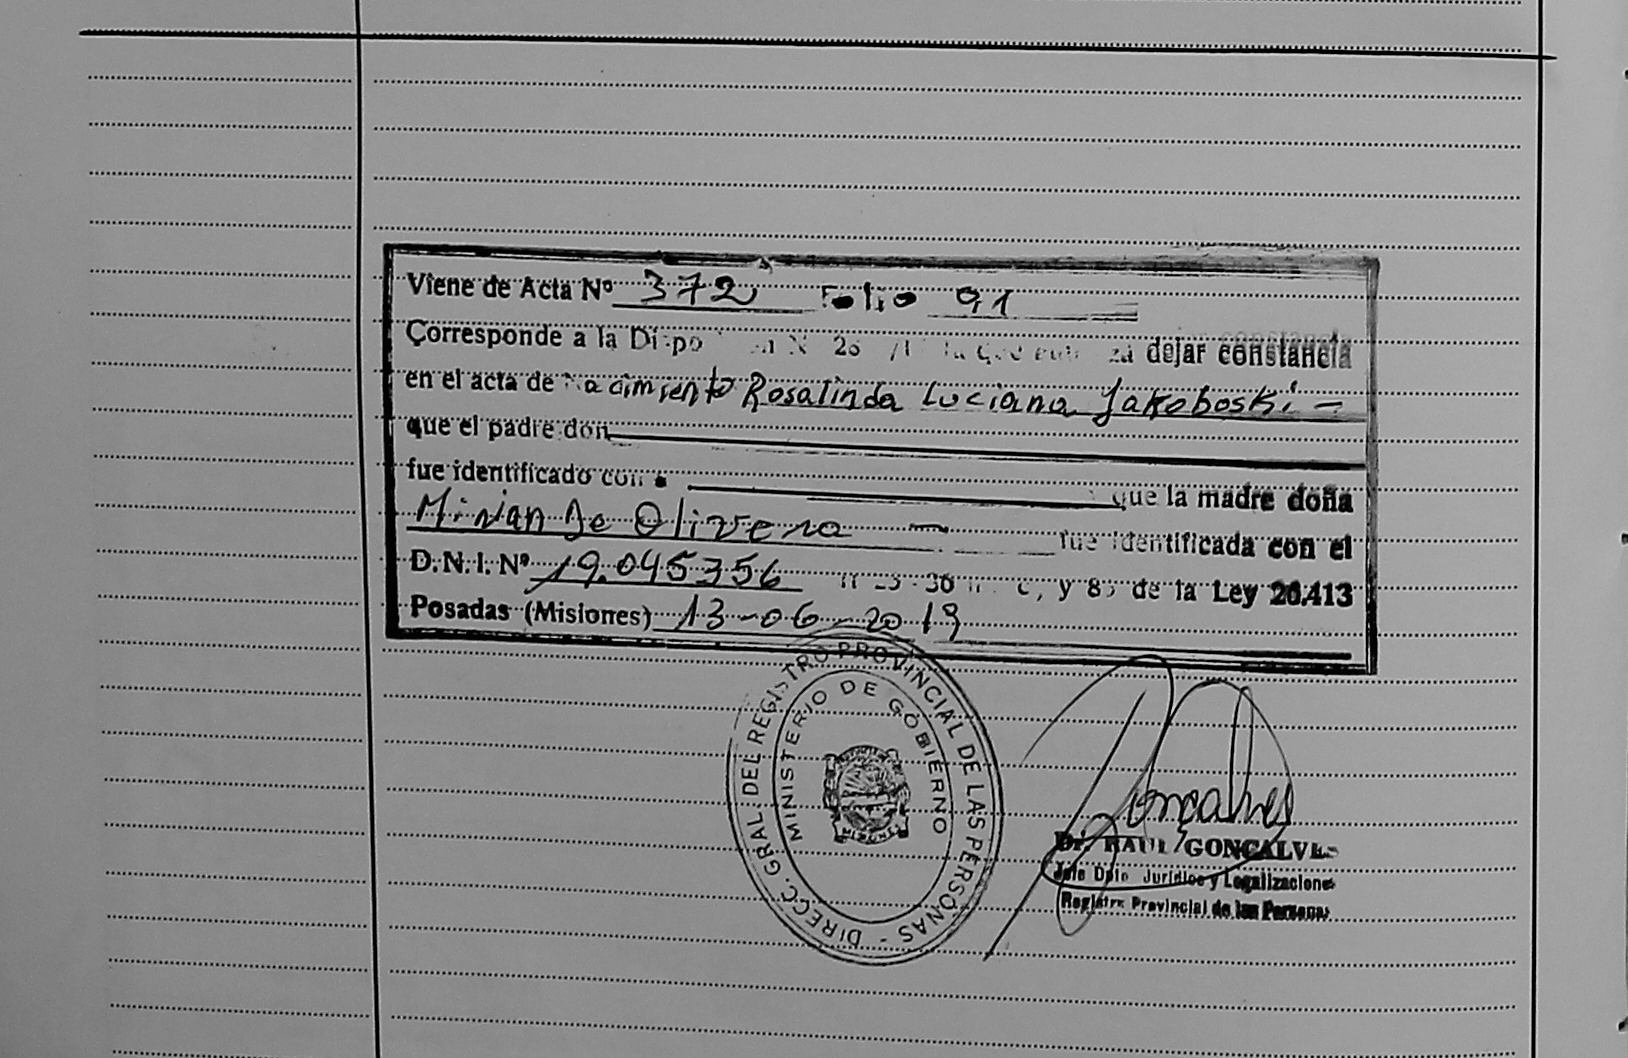 Viene de Acta Nº 372 Folio 91
Corresponde a la dejar constancia
en el acta de Nacimiento Rosalinda Luciana Jakoboski -
que el padre don
fue identificado con que la madre doña
Mirian De Olivera - fue identificada con el
D.N.I. Nº 19.045356 y 8) de la Ley 20.413
Posadas (Misiones) 13-06-2019
DIRECC. GRAL. DEL REGISTRO PROVINCIAL DE LAS PERSONAS -
MINISTERIO DE GOBIERNO
MISIONES
Goncalves
Dr. RAUL GONCALVES
Jefe Dpto Jurídico y Legalizaciones
Registro Provincial de las Personas